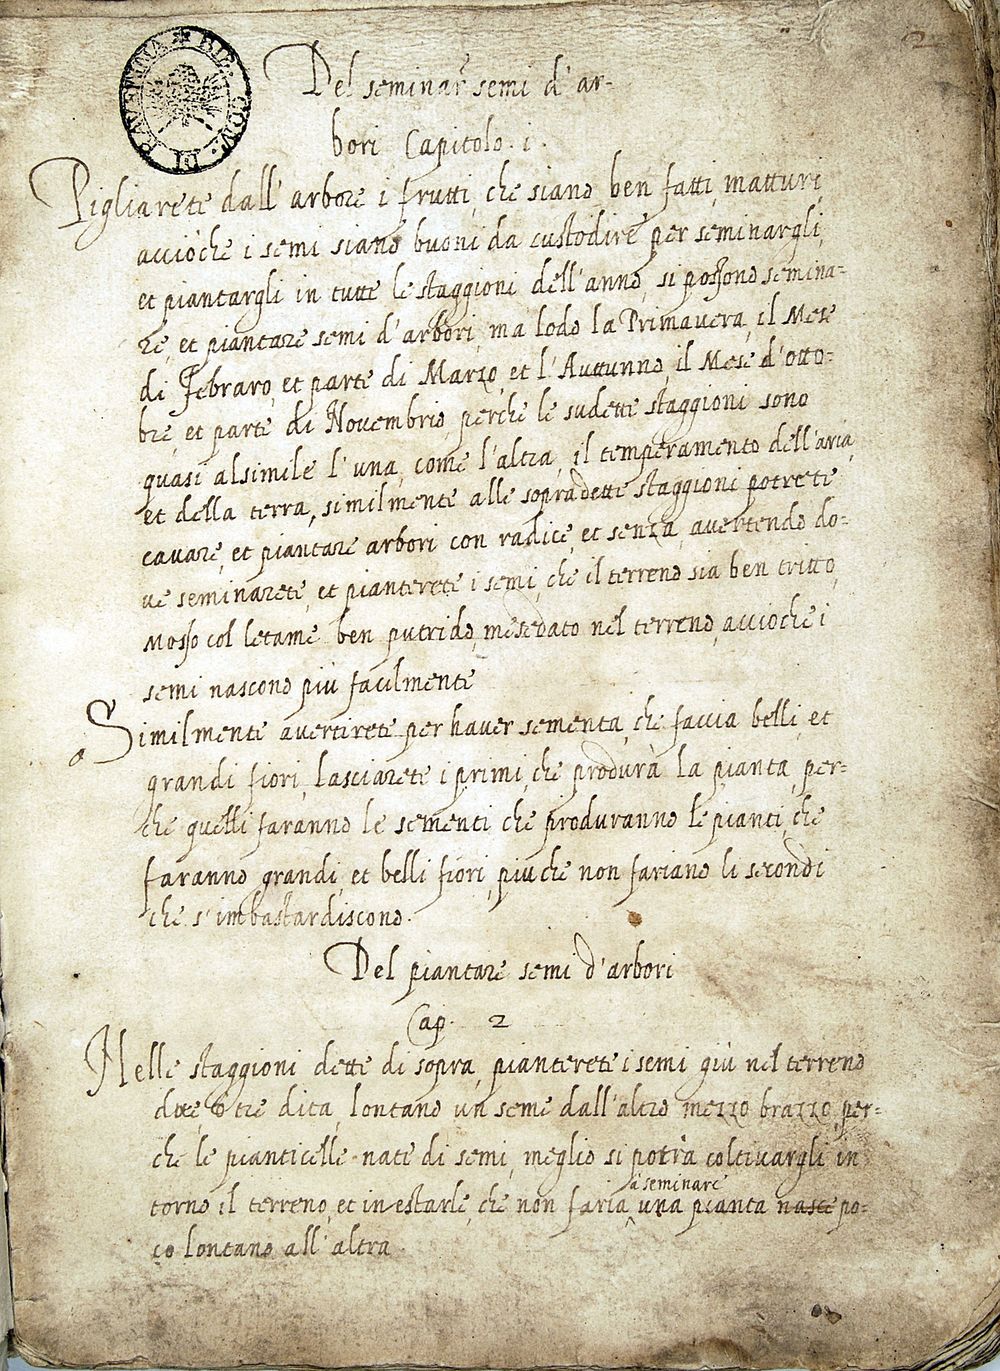 2
BIB. COM. DI RAVENNA
Del seminar semi d'ar-
bori Capitolo . i .
Pigliarete dall'arbore i frutti, che siano ben fatti, matturi,
acciòche i semi siano buoni da custodire per seminargli,
et piantargli in tutte le staggioni dell'anno, si possono semina-
re, et piantare semi d'arbori, ma lodo la Primavera, il Mese
di Febraro, et parte di Marzo, et l'Auttunno, il Mese d'otto-
bre, et parte di Novembrio, perche le sudette staggioni sono
quasi alsimile l'una, come l'altra, il temperamento dell'aria,
et della terra, similmente alle sopradette staggioni potrete
cavare, et piantare arbori con radice, et senza, avertendo do-
ve seminarete, et pianterete i semi, che il terreno sia ben tritto,
Mosso col letame ben putrido, mesedato nel terreno, accioche i
semi nascono più facilmente
Similmente avertirete per haver sementa, che faccia belli, et
grandi fiori, lasciarete i primi, che produrà la pianta, per-
che quelli faranno le sementi, che produranno le pianti, che
faranno grandi, et belli fiori, più che non fariano li secondi
che s'imbastardiscono.
Del piantare semi d'arbori
Cap. 2
Nelle staggioni dette di sopra, pianterete i semi giù nel terreno
due, ò tre dita, lontano un seme dall'altro mezzo brazzo, per-
che le pianticelle nate di semi, meglio si potrà coltivargli in
à seminare
torno il terreno, et inestarle, che non faria una pianta nasce po-
co lontano all'altra.